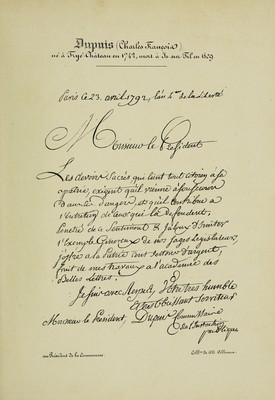 Dupuis (Charles François)
né à Trye-Château en 1742, mort à Is-sur-Til en 1809.
Paris Ce 23. avril 1792, l'an 4e de la Liberté
Monsieur le Président
Les devoirs Sacrés qui lient tout citoyen à sa
patrie, exigent qu'il vienne à son secours
Dans le Danger, et qu'il contribue à
l'entretien de ceux qui la deffendent,
Penetré de ce Sentiment & Jaloux d'imiter
l'Exemple Genereux de nos Sages Legislateurs
j'offre à la Patrie cent Jettons d'argent,
fruit de mes travaux à l'académie des
Belles Lettres.
Je suis avec Respect, Votre très humble
et très obeissant Serviteur
Monsieur le Président, Dupuis Commissaire
de l'instruction
publique
au Président de la Commune.